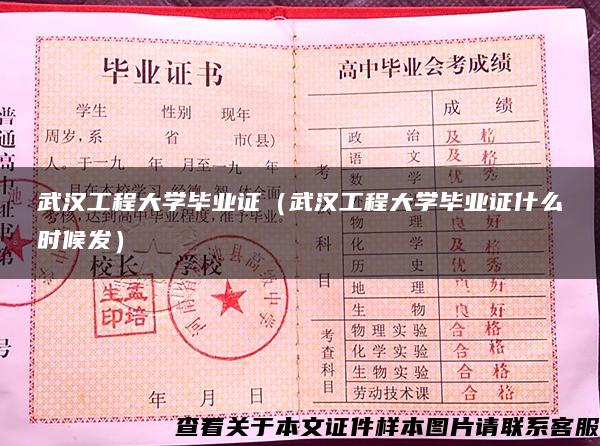 毕业证书
学生 性别 现年
周岁,系 省 市(县)
人。于一九 年 月至一九 年
月在本校学习
考核,达到高中毕业程度,准予毕业。
校长 学校
孟生
培印
年 月 日
普通高中
证书第
号
高中毕业会考成绩
成 绩
考
科目
政 治 及 格
语 文 及 格
数 学 优 秀
物 理 良 好
化 学 及 格
历 史 优 秀
地 理 良 好
生 物 良 好
考查科目
物理实验 合 格
化学实验 合 格
生物实验 合 格
劳动技术课 合 格
武汉工程大学毕业证（武汉工程大学毕业证什么
时候发）
查看关于本文证件样本图片请联系客服